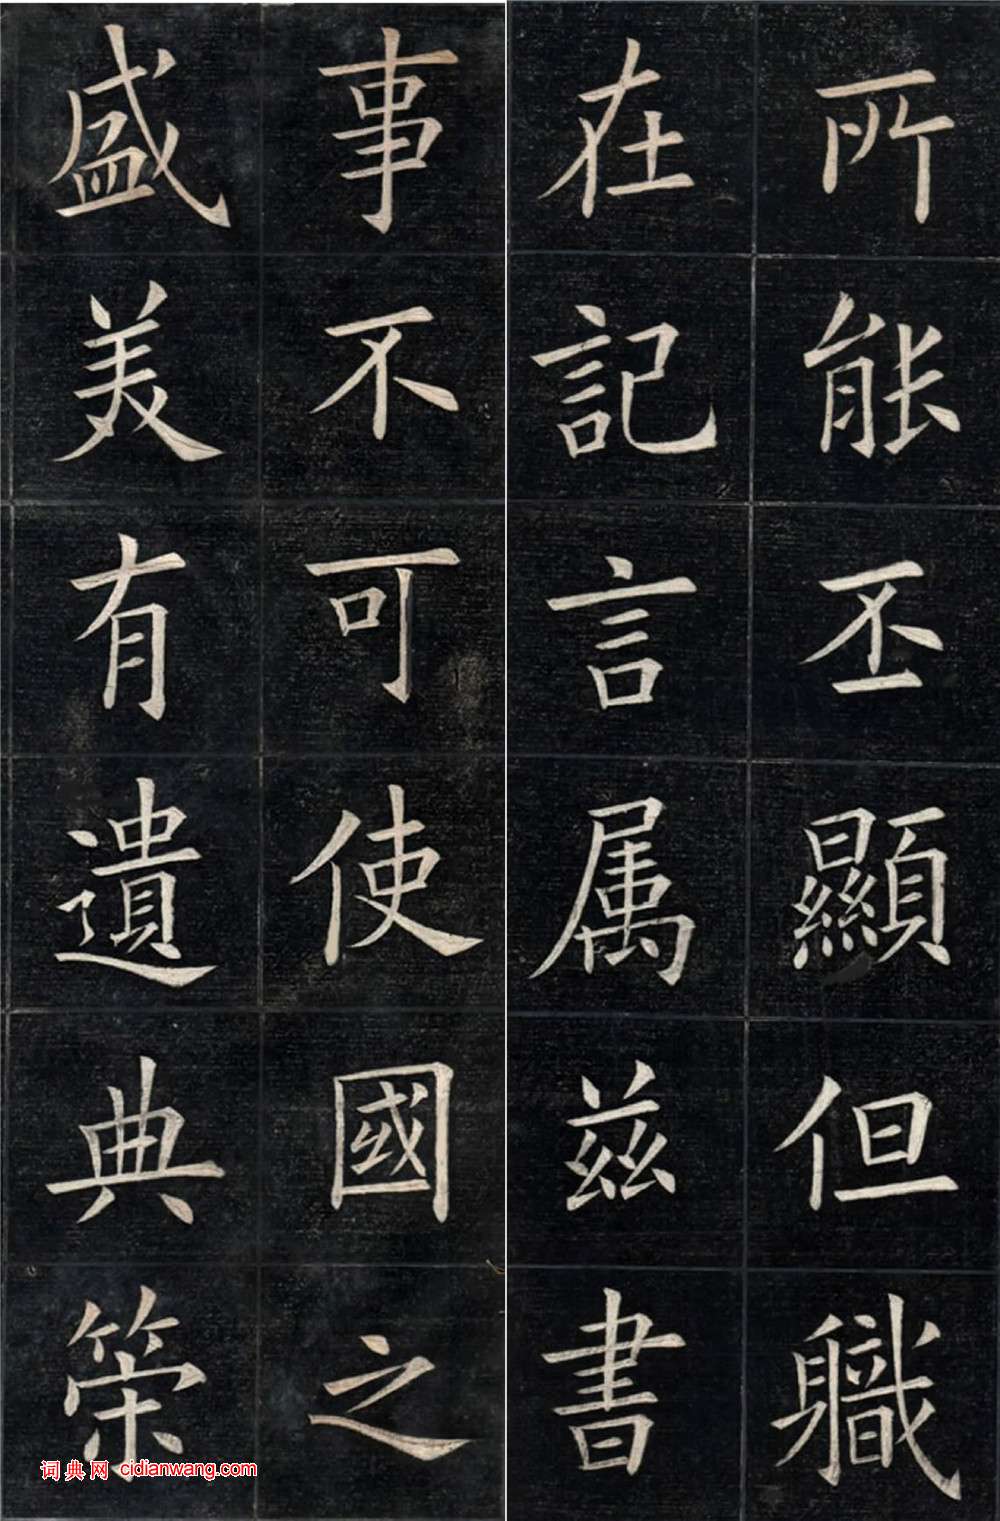 所能丕顯但軄
在記言属茲書
事不可使國之
盛美有遺典䇿
词典网 cidianwang.com